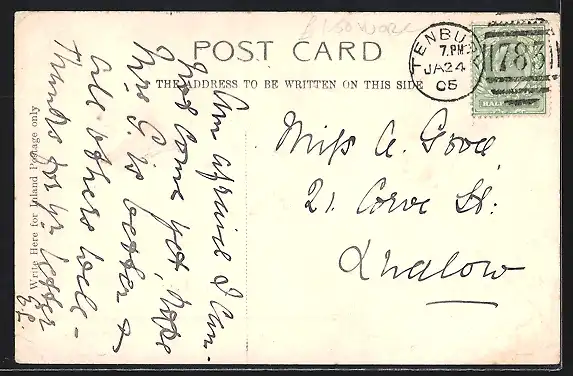 POST CARD
THE ADDRESS TO BE WRITTEN ON THIS SIDE
Write Here for Inland Postage only
TENBURY
7.PM
JA 24
05
783
HALF
Am afraid I can-
not come yet, hope
Mrs G. is better &
all others well -
Thanks for yr letter
Miss A. Good
21. Corve St:
Ludlow